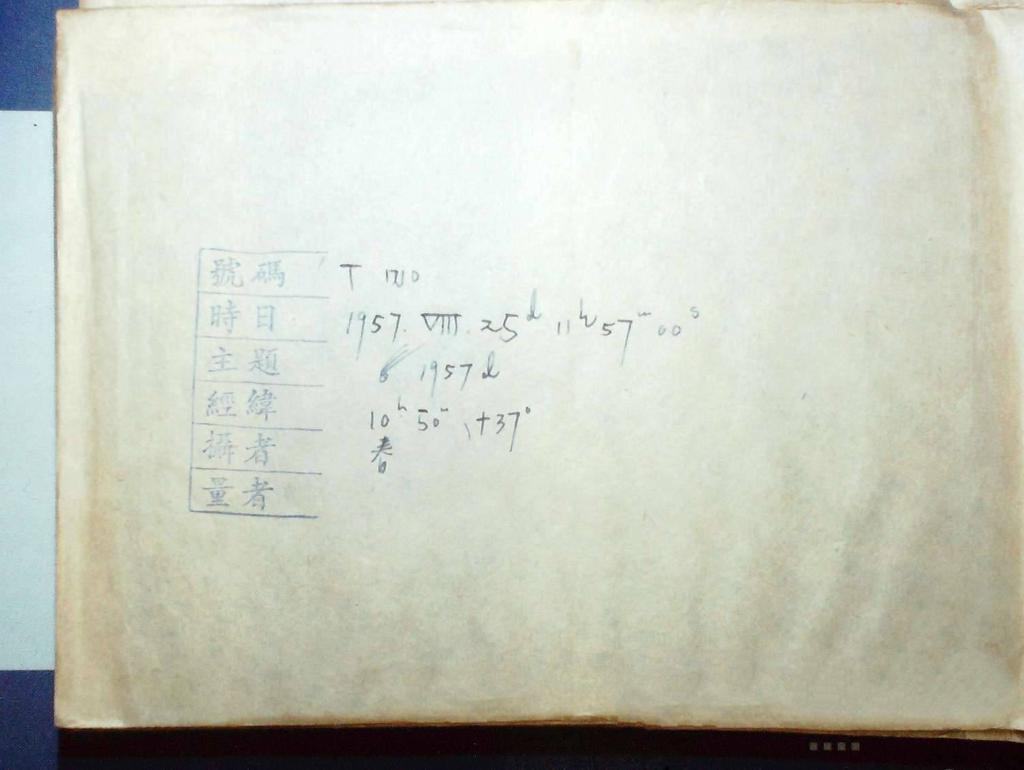 號碼 T 1710
時日 1957. VIII. 25d 11h 57m 00s
主題 1957 d
經緯 10h 50m, +37°
攝者 春
量者